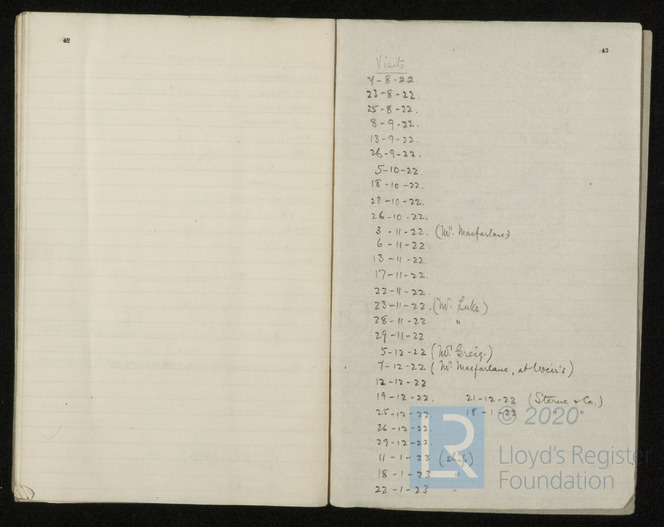 42
43
Visits
7-8-22
23-8-22.
25-8-22.
8-9-22.
13-9-22.
26-9-22.
5-10-22.
18-10-22.
26-10-22.
3-11-22. (Mr. Macfarlane)
6-11-22.
13-11-22.
17-11-22.
22-11-22.
23-11-22. (Mr. Luke)
28-11-22 "
29-11-22
5-12-22 (Mr. Greig.)
7-12-22 (Mr. Macfarlane, at Weir's)
12-12-22
19-12-22. 21-12-22 (Sterne & Co.)
25-12-22. 18-1-23 " "
26-12-22.
29-12-22.
11-1-23 (Ship)
18-1-23 "
22-1-23 "
LR
© 2020
Lloyd's Register
Foundation